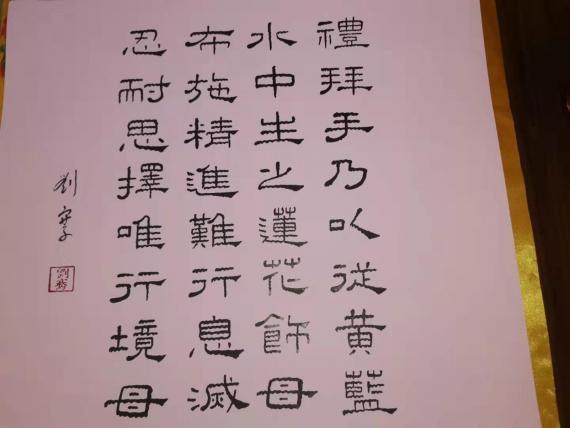 禮拜手乃以從黄藍
水中生之蓮花飾母
布施精進難行息滅
忍耐思擇唯行境母
劉